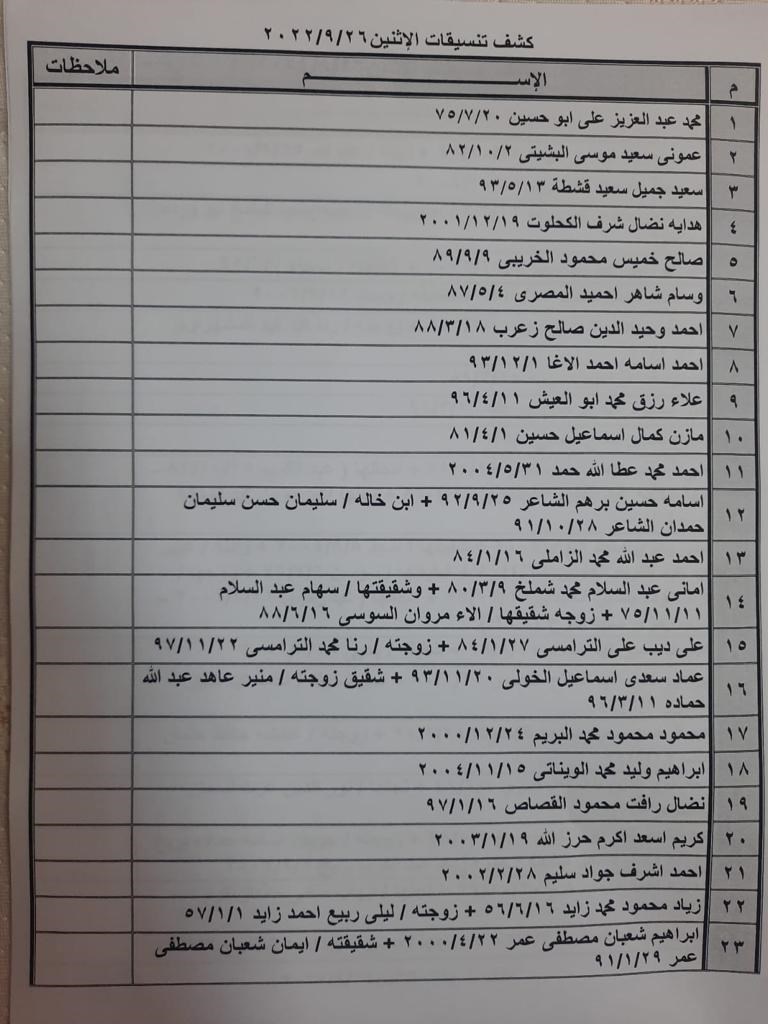 كشف تنسيقات الإثنين ٢٠٢٢/٩/٢٦
م الإســـــــــــــــــم ملاحظات
١ محمد عبد العزيز على ابو حسين ٧٥/٧/٢٠
٢ عمونى سعيد موسى البشيتى ٨٢/١٠/٢
٣ سعيد جميل سعيد قشطة ٩٣/٥/١٣
٤ هدايه نضال شرف الكحلوت ٢٠٠١/١٢/١٩
٥ صالح خميس محمود الخريبى ٨٩/٩/٩
٦ وسام شاهر احميد المصرى ٨٧/٥/٤
٧ احمد وحيد الدين صالح زعرب ٨٨/٣/١٨
٨ احمد اسامه احمد الاغا ٩٣/١٢/١
٩ علاء رزق محمد ابو العيش ٩٦/٤/١١
١٠ مازن كمال اسماعيل حسين ٨١/٤/١
١١ احمد محمد عطا الله حمد ٢٠٠٤/٥/٣١
١٢ اسامه حسين برهم الشاعر ٩٢/٩/٢٥ + ابن خاله / سليمان حسن سليمان
حمدان الشاعر ٩١/١٠/٢٨
١٣ احمد عبد الله محمد الزاملى ٨٤/١/١٦
١٤ امانى عبد السلام محمد شملخ ٨٠/٣/٩ + وشقيقتها / سهام عبد السلام
٧٥/١١/١١ + زوجه شقيقها / الاء مروان السوسى ٨٨/٦/١٦
١٥ على ديب على الترامسى ٨٤/١/٢٧ + زوجته / رنا محمد الترامسى ٩٧/١١/٢٢
١٦ عماد سعدى اسماعيل الخولى ٩٣/١١/٢٠ + شقيق زوجته / منير عاهد عبد الله
حماده ٩٦/٣/١١
١٧ محمود محمود محمد البريم ٢٠٠٠/١٢/٢٤
١٨ ابراهيم وليد محمد الويناتى ٢٠٠٤/١١/١٥
١٩ نضال رافت محمود القصاص ٩٧/١/١٦
٢٠ كريم اسعد اكرم حرز الله ٢٠٠٣/١/١٩
٢١ احمد اشرف جواد سليم ٢٠٠٢/٢/٢٨
٢٢ زياد محمود محمد زايد ٥٦/٦/١٦ + زوجته / ليلى ربيع احمد زايد ٥٧/١/١
٢٣ ابراهيم شعبان مصطفى عمر ٢٠٠٠/٤/٢٢ + شقيقته / ايمان شعبان مصطفى
عمر ٩١/١/٢٩